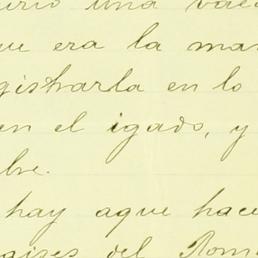 urio una vac
que era la ma
gistrarla en lo
en el igado, y
bre.
hay aque hace
aises del Rom